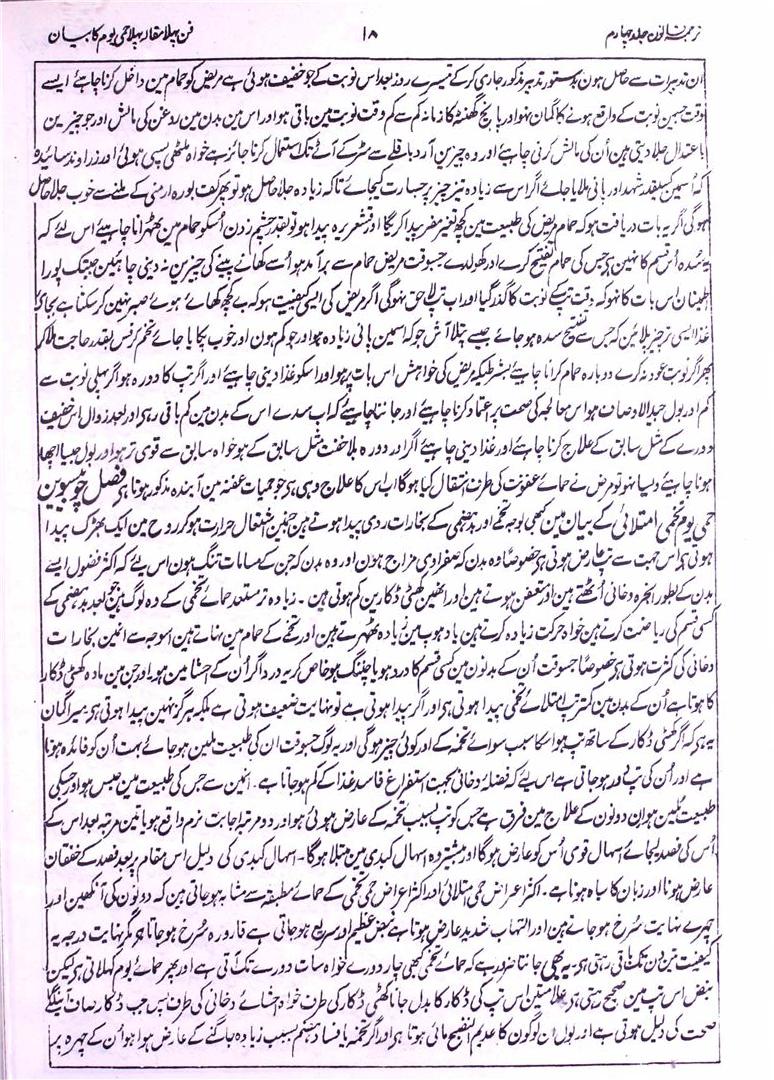 ترجمہ قانون جلد چہارم ۱۸ فن پہلا مقالہ پہلا حمی یوم کا بیان
ان تدبیرات سے حاصل ہون بدستور تدبیر مذکور جاری کرکے تیسرے روز بعد اس نوبت کے جو خفیف ہوئی ہے مریض کو حمام مین داخل کرنا چاہئے ایسے
وقت جسمین نوبت کے واقع ہونے کا گمان نہو اور پانچ گھنٹہ کا زمانہ کم سے کم وقت نوبت مین باقی ہو اور اس مین بدن مین روغن کی مالش اور جو چیزین
باعتدال جلا دیتی ہین اُن کی مالش کرنی چاہیے اور وہ چیزین آرد باقلے سے مٹر کے آٹے تک استعمال کرنا جائز ہے خواہ ملٹھی پسی ہوئی اور زراوند سائیدہ
کہ اُسمین کسیقدر شہد اور پانی ملایا جائے اگر اس سے زیادہ تیز چیز پر جسارت کیجائے تاکہ زیادہ جلا حاصل ہو تو پھر کف بورہ ارمنی کے ملنے سے خوب جلا حاصل
ہوگی اگر یہ بات دریافت ہو کہ حمام مریض کی طبیعت مین کچھ تغیر مضر پیدا کریگا اور قشعریرہ پیدا ہو تو بقدر چشم زدن اُسکو حمام مین ٹھہرانا چاہیے اس لئے کہ
یہ سُدہ اُس قسم کا نہین ہی جس کی حمام تفتیح کرے اور کھولدے جسوقت مریض حمام سے برآمد ہو اُسے کھانے پینے کی چیزین نہ دینی چاہیین جبتک پورا
اطمینان اس بات کا نہو کہ وقت تپ کے نوبت کا گذر گیا اور اب تپ لاحق نہوگی اگر مریض کی ایسی کیفیت ہو کہ بے کچھ کھائے ہوے صبر نہین کر سکتا ہے بجائے
غذا ایسی تر چیز پلائین کہ جس سے تفتیح سدہ ہو جائے جیسے پتلا آش جو کہ اسمین پانی زیادہ ہو اور جو کم ہون اور خوب پکایا جائے تخم کرفس بقدر حاجت ملاکر
پھر اگر نوبت عود نہ کرے دوبارہ حمام کرانا چاہئے بشرطیکہ مریض کی خواہش اس بات پر ہو اور اسکو غذا دینی چاہیے اور اگر تپ کا دورہ ہو اگر پہلی نوبت سے
کم اور بول جید الاوصاف ہو اس معالجہ کی صحت پر اعتماد کرنا چاہیے اور جاننا چاہئے کہ اب سدے اس کے بدن مین کم باقی رہی اور بعد زوال اس خفیف
دورے کے مثل سابق کے علاج کرنا چاہئے اور غذا دینی چاہیے اگر اور دورہ بلاخفت مثل سابق کے ہو خواہ سابق سے قوی تر ہو اور بول جیسا اچھا
ہونا چاہیے ویسا نہو تو مرض نے حمائے عفونت کی طرف انتقال کیا ہوگا اب اس کا علاج وہی ہی جو حمیات عفنہ مین آیندہ مذکور ہوتا ہی فصل چوبیسوین
حمی یوم تخمی امتلائی کے بیان مین کبھی بوجہ تخمے اور بدہضمی کے بخارات ردی پیدا ہوتے ہین جنمین اشتعال حرارت ہو کر روح مین ایک بھڑک پیدا
ہوتی ہی اس جہت سے تپ عارض ہوتی ہی خصوصاً وہ بدن کہ صفراوی مزاج ہون اور وہ بدن کہ جن کے مسامات تنگ ہون اس لئے کہ اکثر فضول ایسے
بدن کے بطور ابخرہ دخانی اُٹھتے ہین اور متعفن ہوتے ہین اور انھین کھٹی ڈکارین کم ہوتی ہین۔ زیادہ تر مستعد حمائے تخمی کے وہ لوگ ہین جو بعد بدہضمی کے
کسی قسم کی ریاضت کرتے ہین خواہ حرکت زیادہ کرتے ہین یا دھوپ مین زیادہ ٹھہرتے ہین اور تخمے کے حمام مین نہاتے ہین اسوجہ سے انمین بخارات
دخانی کی کثرت ہوتی ہی خصوصاً جسوقت اُن کے بدنون مین کسی قسم کا درد ہو یا چٹنگ ہو خاص کر یہ درد اگر اُن کے احشا مین ہو۔ اور جن مین مادہ کھٹی ڈکار
کا ہوتا ہے اُن کے بدن مین کمتر تپ امتلائے تخمی پیدا ہوتی ہی اور اگر پیدا ہوتی ہے تو نہایت ضعیف ہوتی ہے بلکہ ہرگز نہین پیدا ہوتی ہی میرا گمان
یہ ہی کہ اگر کھٹی ڈکار کے ساتھ تپ ہو اسکا سبب سوائے تخمہ کے اور کوئی چیز ہوگی اور یہ لوگ جسوقت ان کی طبیعت ملین ہو جائے بہت اُن کو فائدہ ہوتا
ہے اور اُن کی تپ دور ہو جاتی ہے اس لئے کہ فضلۂ دخانی بجہت استفراغ فاسد غذا کے کم ہو جاتا ہے۔ انمین سے جس کی طبیعت مین حبس ہو اور جسکی
طبیعت ملین ہو ان دونون کے علاج مین فرق ہے جس کو تپ بسبب تخمہ کے عارض ہوئی ہو اور دو مرتبہ اجابت نرم واقع ہو یا تین مرتبہ بعد اس کے
اُس کی فصد لیجائے اسہال قوی اُس کو عارض ہوگا اور بیشتر وہ اسہال کبدی مین مبتلا ہوگا۔ اسہال کبدی کی دلیل اس مقام پر بعد فصد کے خفقان
عارض ہونا اور زبان کا سیاہ ہونا ہے۔ اکثر اعراض حمی امتلائی اور اکثر اعراض حمی تخمی کے حمائے مطبقہ سے مشابہ ہو جاتی ہین کہ دونون کی آنکھین اور
چہرے نہایت سُرخ ہو جاتے ہین اور التہاب شدید عارض ہوتا ہے نبض عظیم اور سریع ہو جاتی ہے قارورہ سُرخ ہو جاتا ہی مگر نہایت درجہ یہ
کیفیت تین دن تک باقی رہتی ہی۔ یہ بھی جاننا ضرور ہے کہ حمائے تخمی کبھی چار دورے خواہ سات دورے تک آتی ہے اور پھر حمائے یوم کہلاتی ہی لیکن
نبض اس تپ مین صحیح رہتی ہی علامتین اس تپ کی ڈکار کا بدل جانا کھٹی ڈکار کی طرف خواہ جشائے دخانی کی طرف پس جب ڈکار صاف آنے لگے
صحت کی دلیل ہوتی ہے اور بول ان لوگون کا عدیم النضج مائی ہوتا ہی اور اگر تخمہ یا فساد ہضم بسبب زیادہ جاگنے کے عارض ہوا ہو اُن کے چہرہ پر